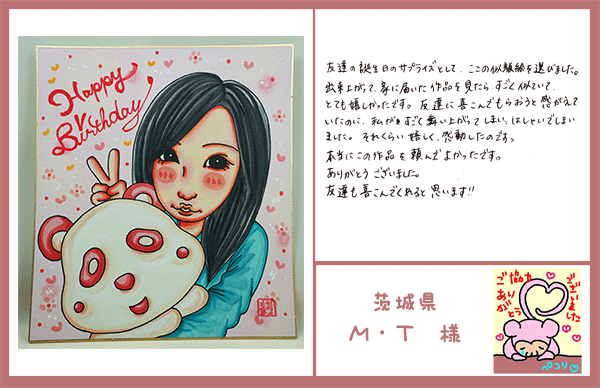 Happy
Birthday
友達の誕生日のサプライズとして、ここの似顔絵を選びました。
出来上がって、家に届いた作品を見たら、すごく似ていて、
とても嬉しかったです。友達に喜んでもらおうと考えて
いたのに、私がすごく舞い上がってしまい、はしゃいでしまい
ました。それくらい嬉しく、感動したのです。
本当にこの作品を頼んでよかったです。
ありがとうございました。
友達も喜こんでくれると思います!!
茨城県
M・T 様
ご協力
ありがとう
ございました
ペコリ